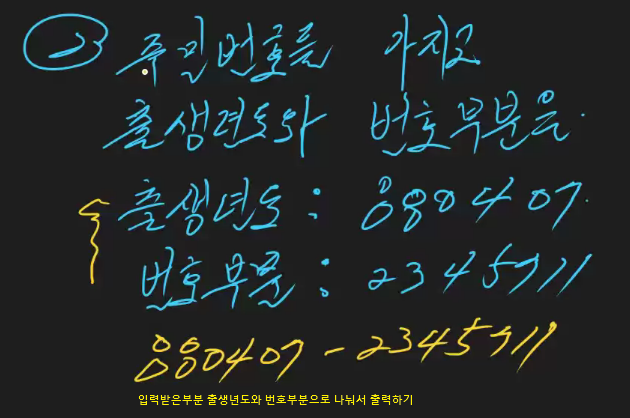 ② 주민번호를 가지고
출생년도와 번호부분은.
출생년도 : 880407.
번호부분 : 2345711
880407 - 2345711
입력받은부분 출생년도와 번호부분으로 나눠서 출력하기